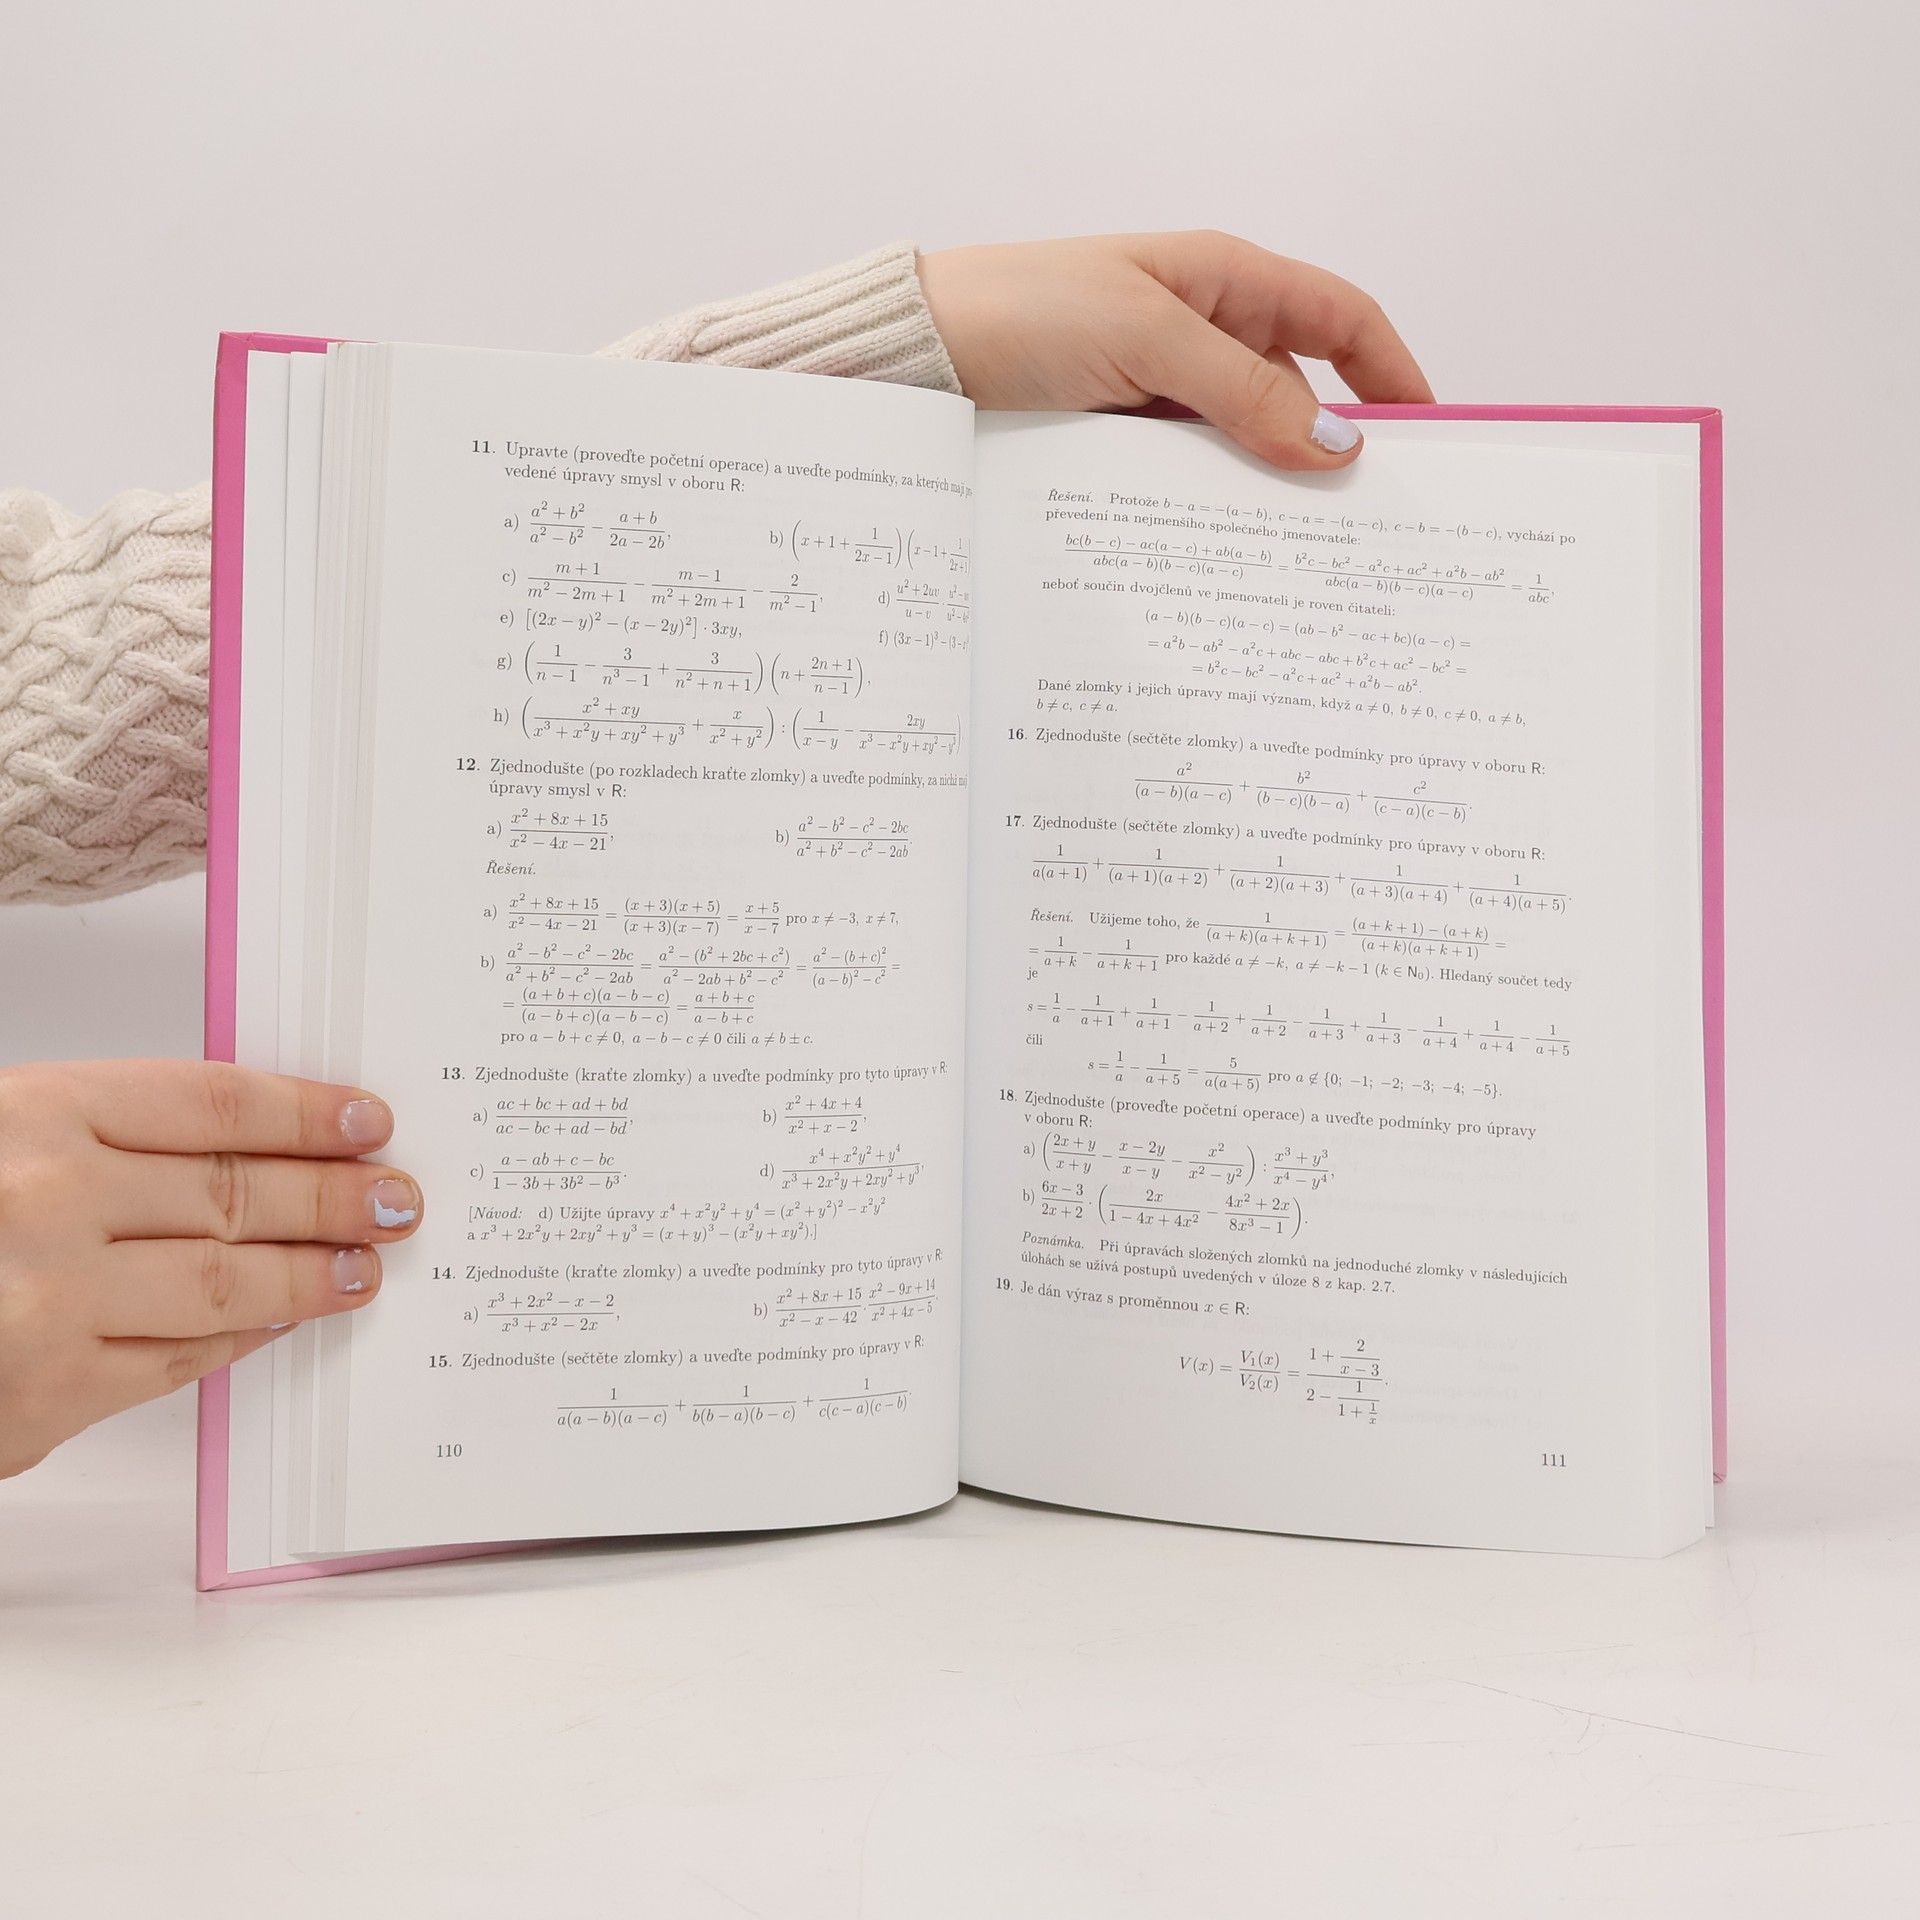 11. Upravte (proveďte početní operace) a uveďte podmínky, za kterých mají
vedené úpravy smysl v oboru R:
a) (a² + b²)/(a² − b²) − (a + b)/(2a − 2b), b) (x + 1 + 1/(2x − 1))(x − 1 + 1/(2x + 1)
c) (m + 1)/(m² − 2m + 1) − (m − 1)/(m² + 2m + 1) − 2/(m² − 1), d) (u² + 2uv)/(u − v) ·
e) [(2x − y)² − (x − 2y)²] · 3xy, f) (3x − 1)³ − (3 −
g) (1/(n − 1) − 3/(n³ − 1) + 3/(n² + n + 1))(n + (2n + 1)/(n − 1)),
h) ((x² + xy)/(x³ + x²y + xy² + y³) + x/(x² + y²)) : (1/(x − y) − 2xy/(x³ − x²y + xy² − y³))
12. Zjednodušte (po rozkladech kraťte zlomky) a uveďte podmínky, za nichž
úpravy smysl v R:
a) (x² + 8x + 15)/(x² − 4x − 21), b) (a² − b² − c² − 2bc)/(a² + b² − c² − 2ab).
Řešení.
a) (x² + 8x + 15)/(x² − 4x − 21) = (x + 3)(x + 5)/((x + 3)(x − 7)) = (x + 5)/(x − 7) pro x ≠ −3, x ≠ 7,
b) (a² − b² − c² − 2bc)/(a² + b² − c² − 2ab) = (a² − (b² + 2bc + c²))/(a² − 2ab + b² − c²) = (a² − (b + c)²)/((a − b)² − c²) =
= (a + b + c)(a − b − c)/((a − b + c)(a − b − c)) = (a + b + c)/(a − b + c)
pro a − b + c ≠ 0, a − b − c ≠ 0 čili a ≠ b ± c.
13. Zjednodušte (kraťte zlomky) a uveďte podmínky pro tyto úpravy v R:
a) (ac + bc + ad + bd)/(ac − bc + ad − bd), b) (x² + 4x + 4)/(x² + x − 2),
c) (a − ab + c − bc)/(1 − 3b + 3b² − b³). d) (x⁴ + x²y² + y⁴)/(x³ + 2x²y + 2xy² + y³),
[Návod: d) Užijte úpravy x⁴ + x²y² + y⁴ = (x² + y²)² − x²y²
a x³ + 2x²y + 2xy² + y³ = (x + y)³ − (x²y + xy²).]
14. Zjednodušte (kraťte zlomky) a uveďte podmínky pro tyto úpravy v R:
a) (x³ + 2x² − x − 2)/(x³ + x² − 2x), b) (x² + 8x + 15)/(x² − x − 42) · (x² − 9x + 14)/(x² + 4x − 5).
15. Zjednodušte (sečtěte zlomky) a uveďte podmínky pro úpravy v R:
1/(a(a − b)(a − c)) + 1/(b(b − a)(b − c)) + 1/(c(c − a)(c − b)).
110
Řešení. Protože b − a = −(a − b), c − a = −(a − c), c − b = −(b − c), vychází po
převedení na nejmenšího společného jmenovatele:
(bc(b − c) − ac(a − c) + ab(a − b))/(abc(a − b)(b − c)(a − c)) = (b²c − bc² − a²c + ac² + a²b − ab²)/(abc(a − b)(b − c)(a − c)) = 1/(abc),
neboť součin dvojčlenů ve jmenovateli je roven čitateli:
(a − b)(b − c)(a − c) = (ab − b² − ac + bc)(a − c) =
= a²b − ab² − a²c + abc − abc + b²c + ac² − bc² =
= b²c − bc² − a²c + ac² + a²b − ab².
Dané zlomky i jejich úpravy mají význam, když a ≠ 0, b ≠ 0, c ≠ 0, a ≠ b,
b ≠ c, c ≠ a.
16. Zjednodušte (sečtěte zlomky) a uveďte podmínky pro úpravy v oboru R:
a²/((a − b)(a − c)) + b²/((b − c)(b − a)) + c²/((c − a)(c − b)).
17. Zjednodušte (sečtěte zlomky) a uveďte podmínky pro úpravy v oboru R:
1/(a(a + 1)) + 1/((a + 1)(a + 2)) + 1/((a + 2)(a + 3)) + 1/((a + 3)(a + 4)) + 1/((a + 4)(a + 5)).
Řešení. Užijeme toho, že 1/((a + k)(a + k + 1)) = ((a + k + 1) − (a + k))/((a + k)(a + k + 1)) =
= 1/(a + k) − 1/(a + k + 1) pro každé a ≠ −k, a ≠ −k − 1 (k ∈ N₀). Hledaný součet tedy
je
s = 1/a − 1/(a + 1) + 1/(a + 1) − 1/(a + 2) + 1/(a + 2) − 1/(a + 3) + 1/(a + 3) − 1/(a + 4) + 1/(a + 4) − 1/(a + 5)
čili
s = 1/a − 1/(a + 5) = 5/(a(a + 5)) pro a ∉ {0; −1; −2; −3; −4; −5}.
18. Zjednodušte (proveďte početní operace) a uveďte podmínky pro úpravy
v oboru R:
a) ((2x + y)/(x + y) − (x − 2y)/(x − y) − x²/(x² − y²)) : (x³ + y³)/(x⁴ − y⁴),
b) (6x − 3)/(2x + 2) · (2x/(1 − 4x + 4x²) − (4x² + 2x)/(8x³ − 1)).
Poznámka. Při úpravách složených zlomků na jednoduché zlomky v následujících
úlohách se užívá postupů uvedených v úloze 8 z kap. 2.7.
19. Je dán výraz s proměnnou x ∈ R:
V(x) = V₁(x)/V₂(x) = (1 + 2/(x − 3))/(2 − 1/(1 + 1/x)).
111